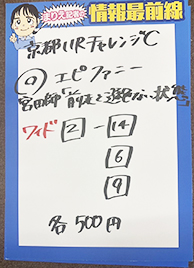 まりえ記者の情報最前線
京都11RチャレンジC
◎エピファニー
宮田師「前走と遜色ない状態」
ワイド 2－14
6
9
各500円